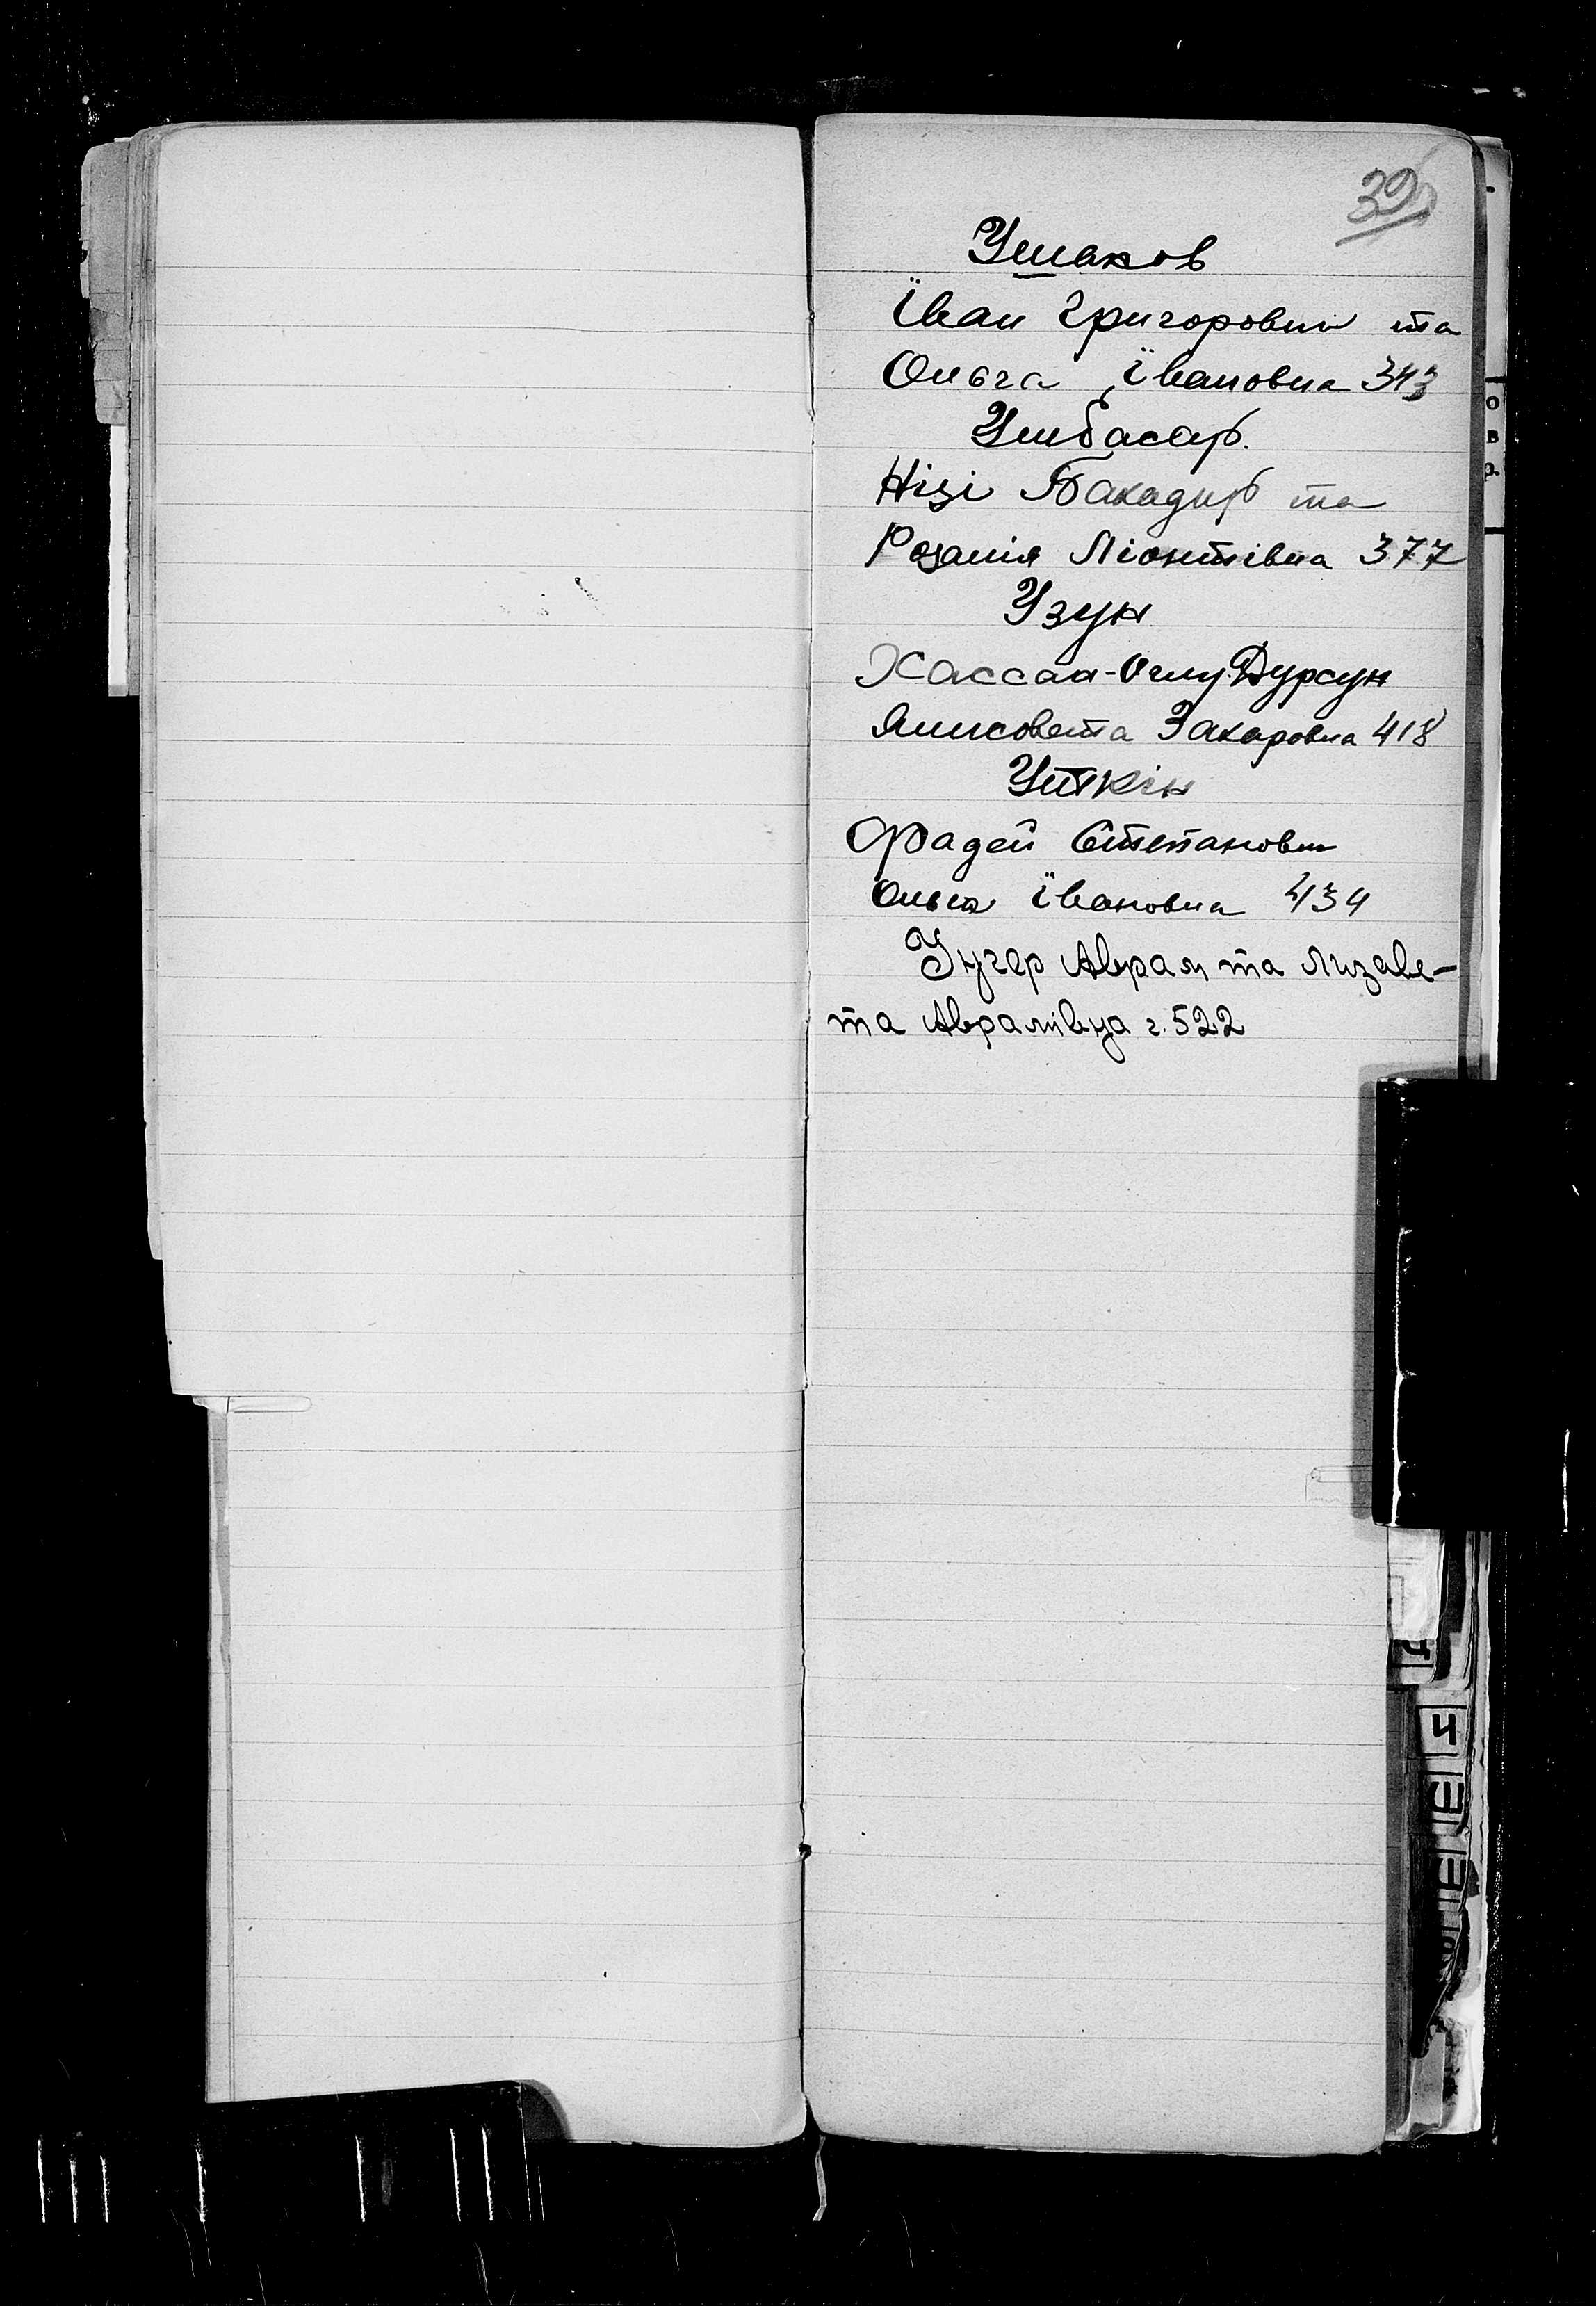 32
Ушаков
Їван Григорович та
Ольга Ївановна 343
Ушбасар.
Нізі Бахадир та
Розалія Ліонтівна 377
Узун
Хассан-Оглу Дурсун
Ялисовета Захаровна 418
Уткін
Фадей Степанович
Ольга Ївановна 434
Унгер Аврам та Лизаве-
та Аврамівна г. 522
Ч
Ш
Щ